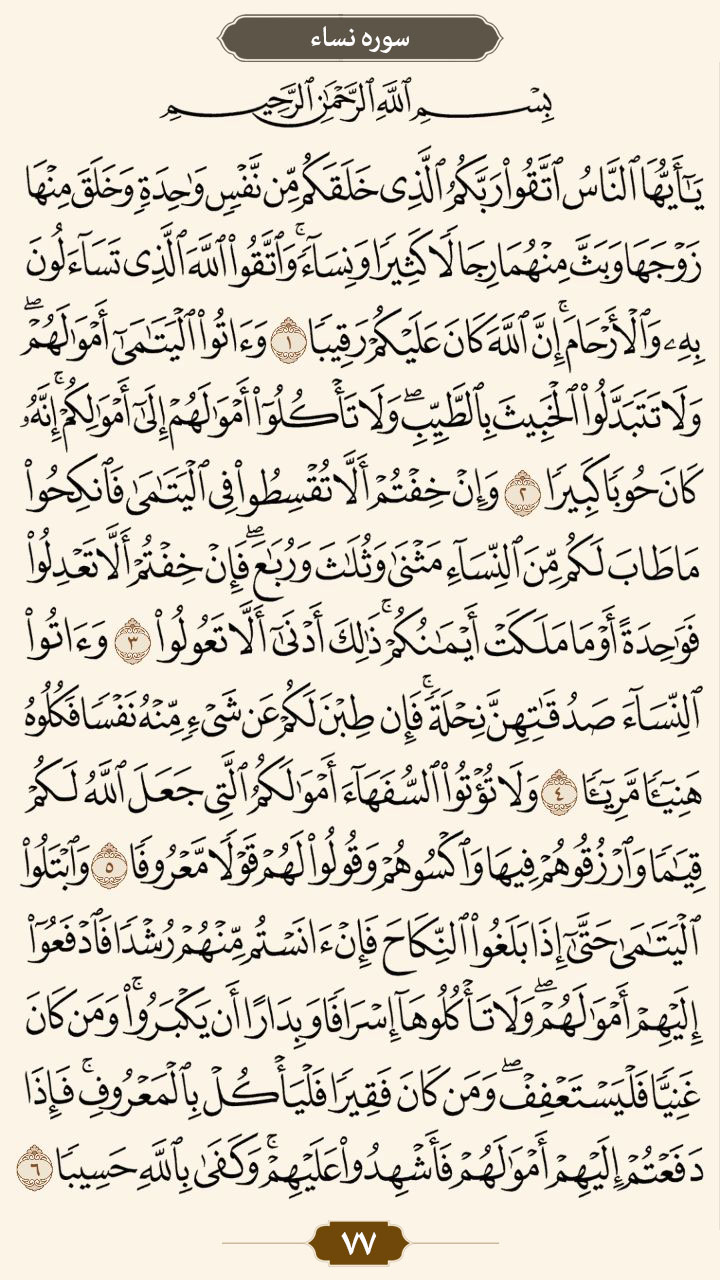 سوره نساء
بِسْمِ ٱللَّهِ ٱلرَّحْمَٰنِ ٱلرَّحِيمِ
يَٰٓأَيُّهَا ٱلنَّاسُ ٱتَّقُوا۟ رَبَّكُمُ ٱلَّذِى خَلَقَكُم مِّن نَّفْسٍ وَٰحِدَةٍ وَخَلَقَ مِنْهَا
زَوْجَهَا وَبَثَّ مِنْهُمَا رِجَالًا كَثِيرًا وَنِسَآءً ۚ وَٱتَّقُوا۟ ٱللَّهَ ٱلَّذِى تَسَآءَلُونَ
بِهِۦ وَٱلْأَرْحَامَ ۚ إِنَّ ٱللَّهَ كَانَ عَلَيْكُمْ رَقِيبًا ١ وَءَاتُوا۟ ٱلْيَتَٰمَىٰٓ أَمْوَٰلَهُمْ ۖ
وَلَا تَتَبَدَّلُوا۟ ٱلْخَبِيثَ بِٱلطَّيِّبِ ۖ وَلَا تَأْكُلُوٓا۟ أَمْوَٰلَهُمْ إِلَىٰٓ أَمْوَٰلِكُمْ ۚ إِنَّهُۥ
كَانَ حُوبًا كَبِيرًا ٢ وَإِنْ خِفْتُمْ أَلَّا تُقْسِطُوا۟ فِى ٱلْيَتَٰمَىٰ فَٱنكِحُوا۟
مَا طَابَ لَكُم مِّنَ ٱلنِّسَآءِ مَثْنَىٰ وَثُلَٰثَ وَرُبَٰعَ ۖ فَإِنْ خِفْتُمْ أَلَّا تَعْدِلُوا۟
فَوَٰحِدَةً أَوْ مَا مَلَكَتْ أَيْمَٰنُكُمْ ۚ ذَٰلِكَ أَدْنَىٰٓ أَلَّا تَعُولُوا۟ ٣ وَءَاتُوا۟
ٱلنِّسَآءَ صَدُقَٰتِهِنَّ نِحْلَةً ۚ فَإِن طِبْنَ لَكُمْ عَن شَىْءٍ مِّنْهُ نَفْسًا فَكُلُوهُ
هَنِيٓـًٔا مَّرِيٓـًٔا ٤ وَلَا تُؤْتُوا۟ ٱلسُّفَهَآءَ أَمْوَٰلَكُمُ ٱلَّتِى جَعَلَ ٱللَّهُ لَكُمْ
قِيَٰمًا وَٱرْزُقُوهُمْ فِيهَا وَٱكْسُوهُمْ وَقُولُوا۟ لَهُمْ قَوْلًا مَّعْرُوفًا ٥ وَٱبْتَلُوا۟
ٱلْيَتَٰمَىٰ حَتَّىٰٓ إِذَا بَلَغُوا۟ ٱلنِّكَاحَ فَإِنْ ءَانَسْتُم مِّنْهُمْ رُشْدًا فَٱدْفَعُوٓا۟
إِلَيْهِمْ أَمْوَٰلَهُمْ ۖ وَلَا تَأْكُلُوهَآ إِسْرَافًا وَبِدَارًا أَن يَكْبَرُوا۟ ۚ وَمَن كَانَ
غَنِيًّا فَلْيَسْتَعْفِفْ ۖ وَمَن كَانَ فَقِيرًا فَلْيَأْكُلْ بِٱلْمَعْرُوفِ ۚ فَإِذَا
دَفَعْتُمْ إِلَيْهِمْ أَمْوَٰلَهُمْ فَأَشْهِدُوا۟ عَلَيْهِمْ ۚ وَكَفَىٰ بِٱللَّهِ حَسِيبًا ٦
٧٧